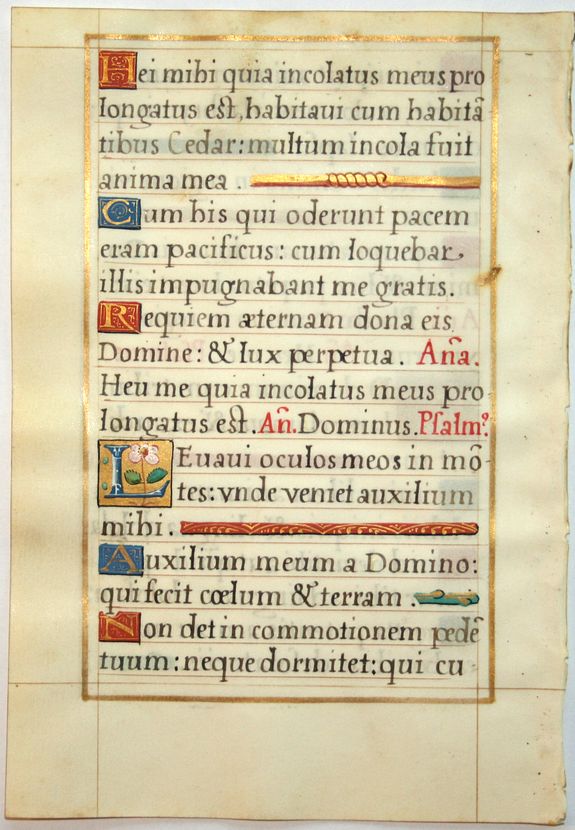 Hei mihi quia incolatus meus pro
longatus est, habitaui cum habitã
tibus Cedar: multum incola fuit
anima mea .
Cum his qui oderunt pacem
eram pacificus: cum loquebar
illis impugnabant me gratis.
Requiem æternam dona eis
Domine: & lux perpetua. Añа.
Heu me quia incolatus meus pro
longatus est. Añ. Dominus. Psalm⁹.
Leuaui oculos meos in mõ-
tes: vnde veniet auxilium
mihi.
Auxilium meum a Domino:
qui fecit cœlum & terram .
Non det in commotionem pedẽ
tuum: neque dormitet: qui cu